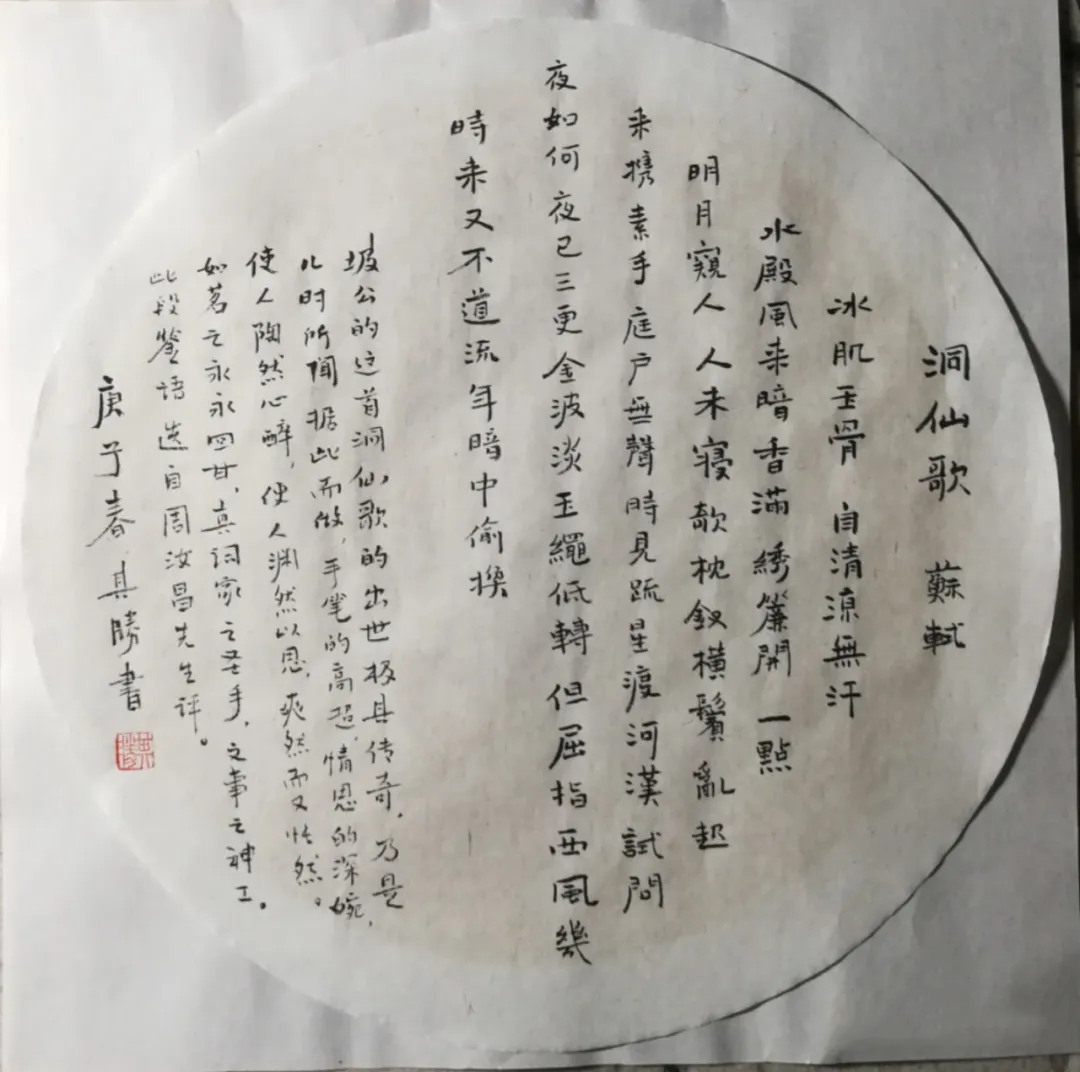 洞仙歌 蘇軾
冰肌玉骨 自清涼無汗
水殿風来暗香滿 綉簾開 一點
明月窺人 人未寝欹枕釵橫鬢亂起
来携素手庭户無聲時見疏星渡河漢試問
夜如何夜已三更金波淡玉繩低轉但屈指西風幾
時来又不道流年暗中偷換
坡公的这首洞仙歌的出世极具传奇，乃是
儿时所闻据此而做，手笔的高超，情思的深婉，
使人陶然心醉，使人渊然以思，爽然而又怅然。
如茗之永永回甘，真词家之圣手，文事之神工。
此段鉴语选自周汝昌先生评。
庚子春 其勝書